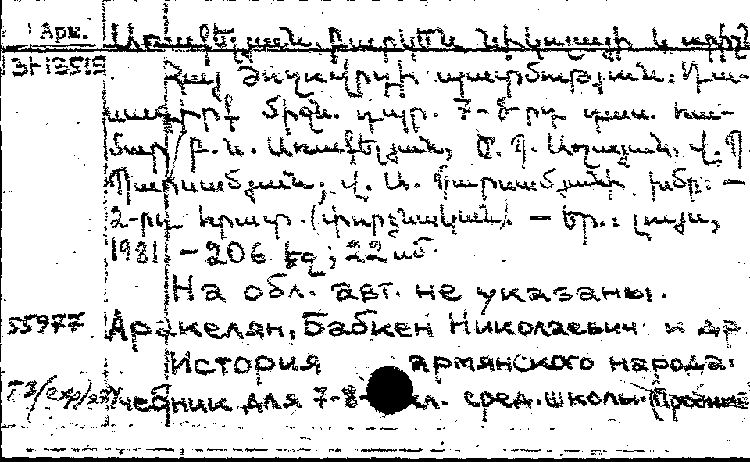 Арм.
Առաքելյան, Բաբկեն Նիկոլայի և ուրիշ
Հայ ժողովրդի պատմություն: Դա-
սագիրք միջն. դպր. 7-8-րդ դաս. հա-
մար / Բ. Ն. Առաքելյան,
Պարսամյան; Վ. Ա. Պարսամյանի խմբ: —
2-րդ հրատ. (փորձնական). — Եր.: Լույս,
1981. — 206 էջ; 22 սմ.
На обл. авт. не указаны.
55977 Аракелян, Бабкен Николаевич и др
История армянского народа.
Учебник для 7-8- кл. сред. школы. (Пробные